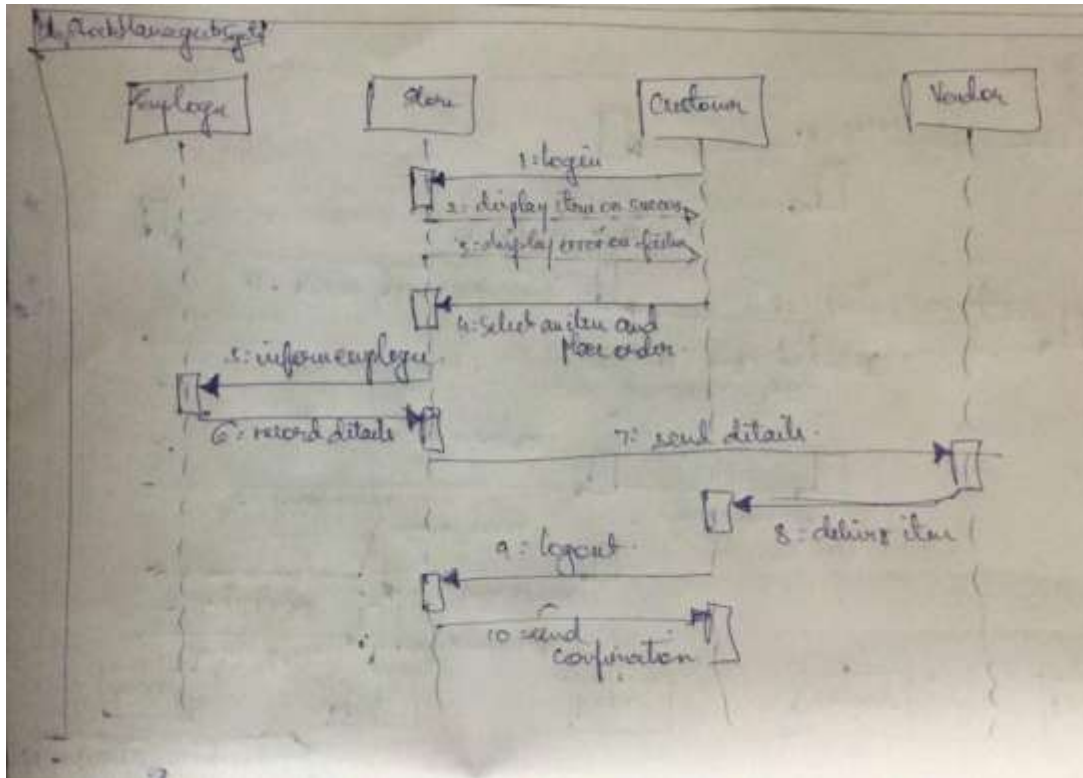 Employee
Store
Customer
Vendor
1: login
2: display item on success
3: display error on failure
4: select an item and
place order.
5: inform employee
6: record details
7: send details.
8: deliver item
9: logout.
10: send
confirmation